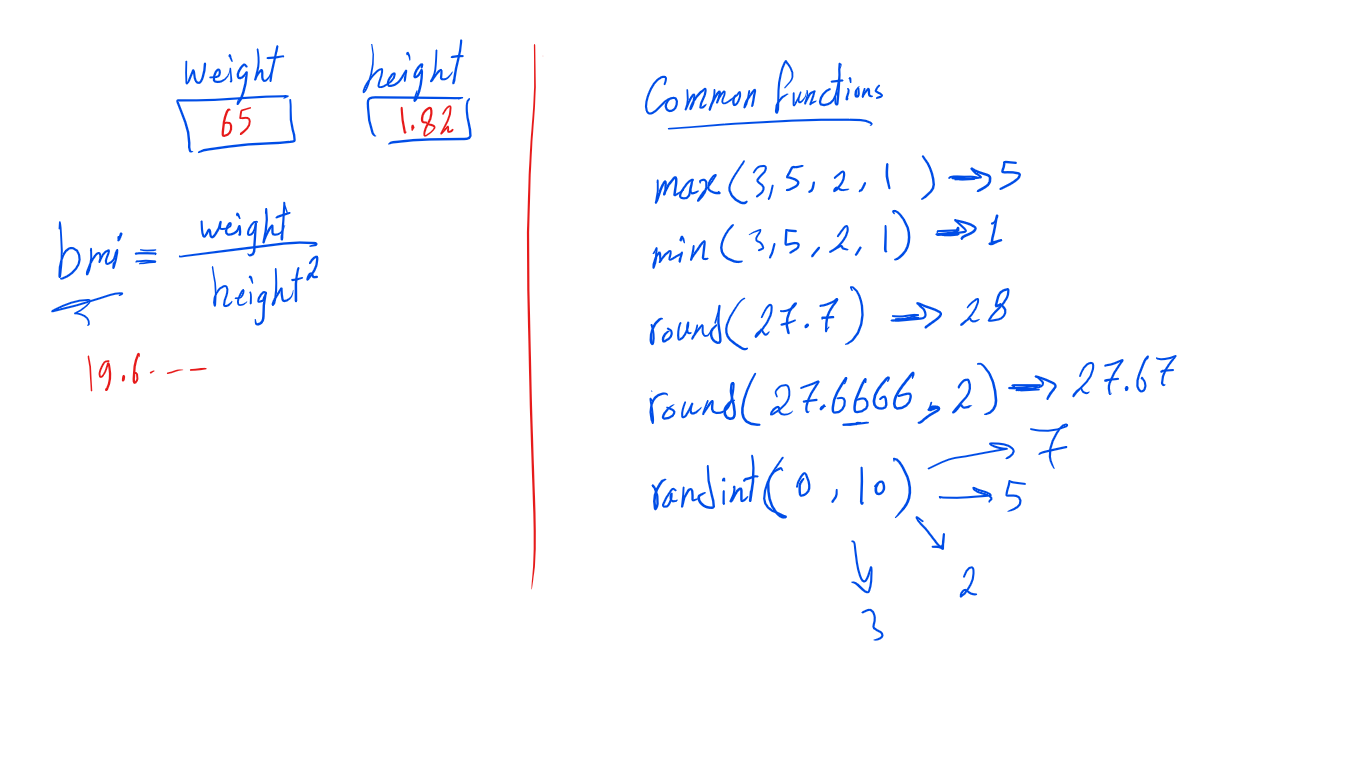 weight height
65 1.82
bmi = weight
height²
19.6 ---
Common functions
max(3,5,2,1) → 5
min(3,5,2,1) → 1
round(27.7) → 28
round(27.6666,2) → 27.67
randint(0,10) → 7
→ 5
2
3